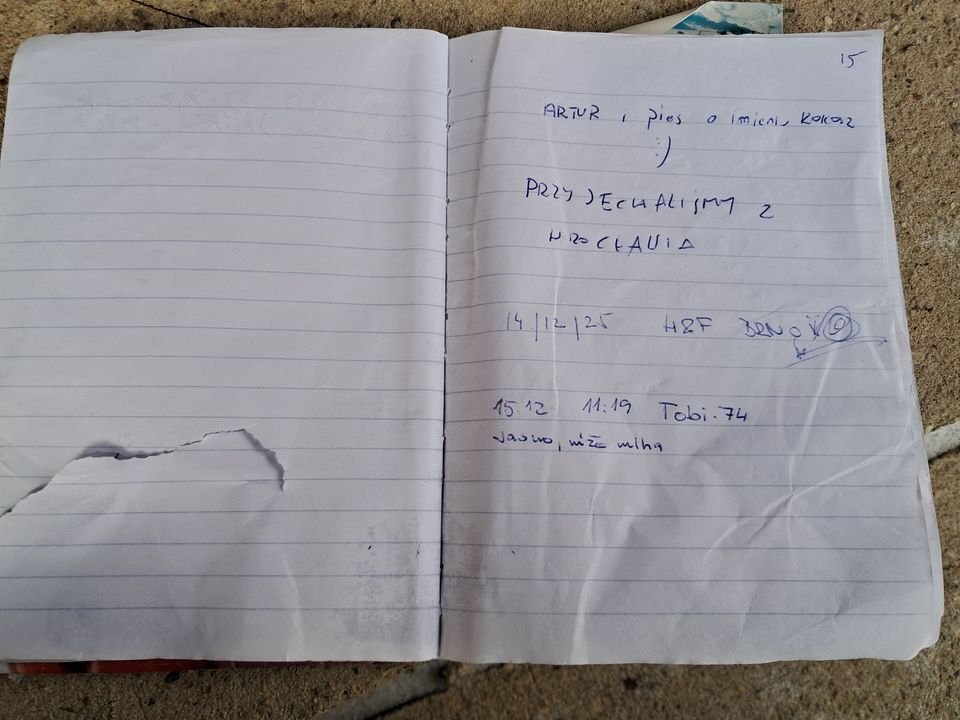 15
ARTUR i pies o imieniu KOKOSZ
:)
PRZYJECHALIŚMY Z
WROCŁAWIA
14/12/25 H&F BRNO
15.12. 11:19 Tobi.74
Jasno, níže mlha